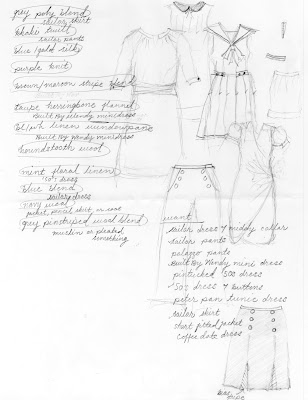 grey poly blend
sailor skirt
khaki twill
sailor pants
blue/gold silk
purple knit
brown/maroon stripe
taupe herringbone flannel
Built By Wendy mini dress
bl/wh linen windowpane
Built By Wendy mini dress
houndstooth wool
mint floral linen
'50's dress
blue blend
sailor dress
navy wool
jacket, pencil skirt or
grey pinstriped wool blend
muslin or pleated
something
want
sailor dress w/ middy collar
sailor pants
palazzo pants
Built By Wendy mini dress
pintucked '50s dress
50's dress w/ buttons
peter pan tunic dress
sailor skirt
short fitted jacket
coffee date dress